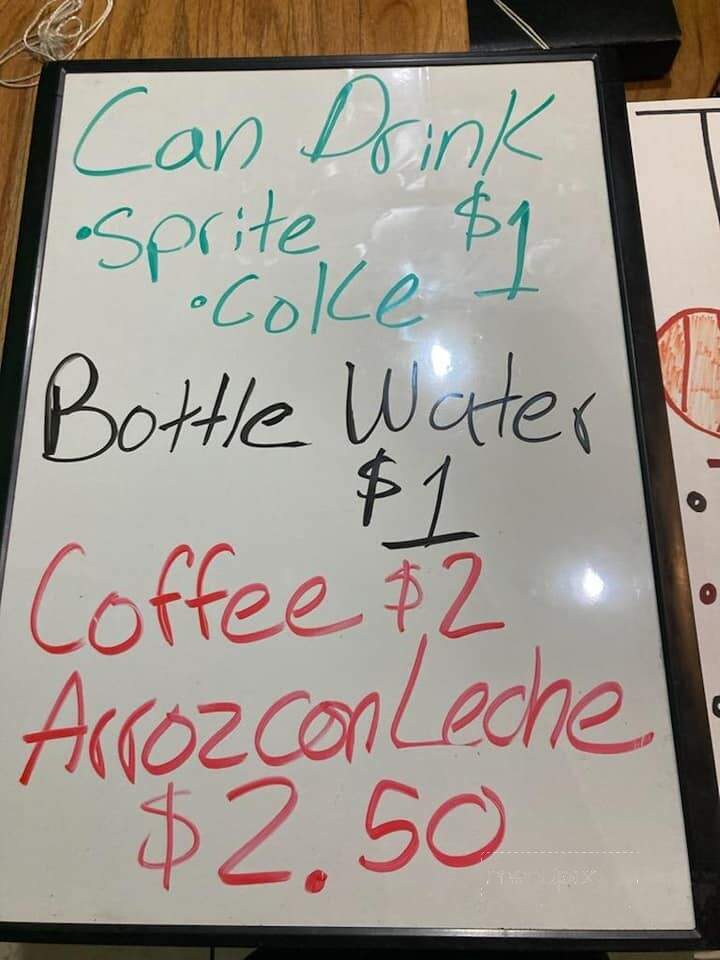 Can Drink
•Sprite $1
•Coke
Bottle Water
$1
Coffee $2
Arroz con Leche
$2.50
menupix